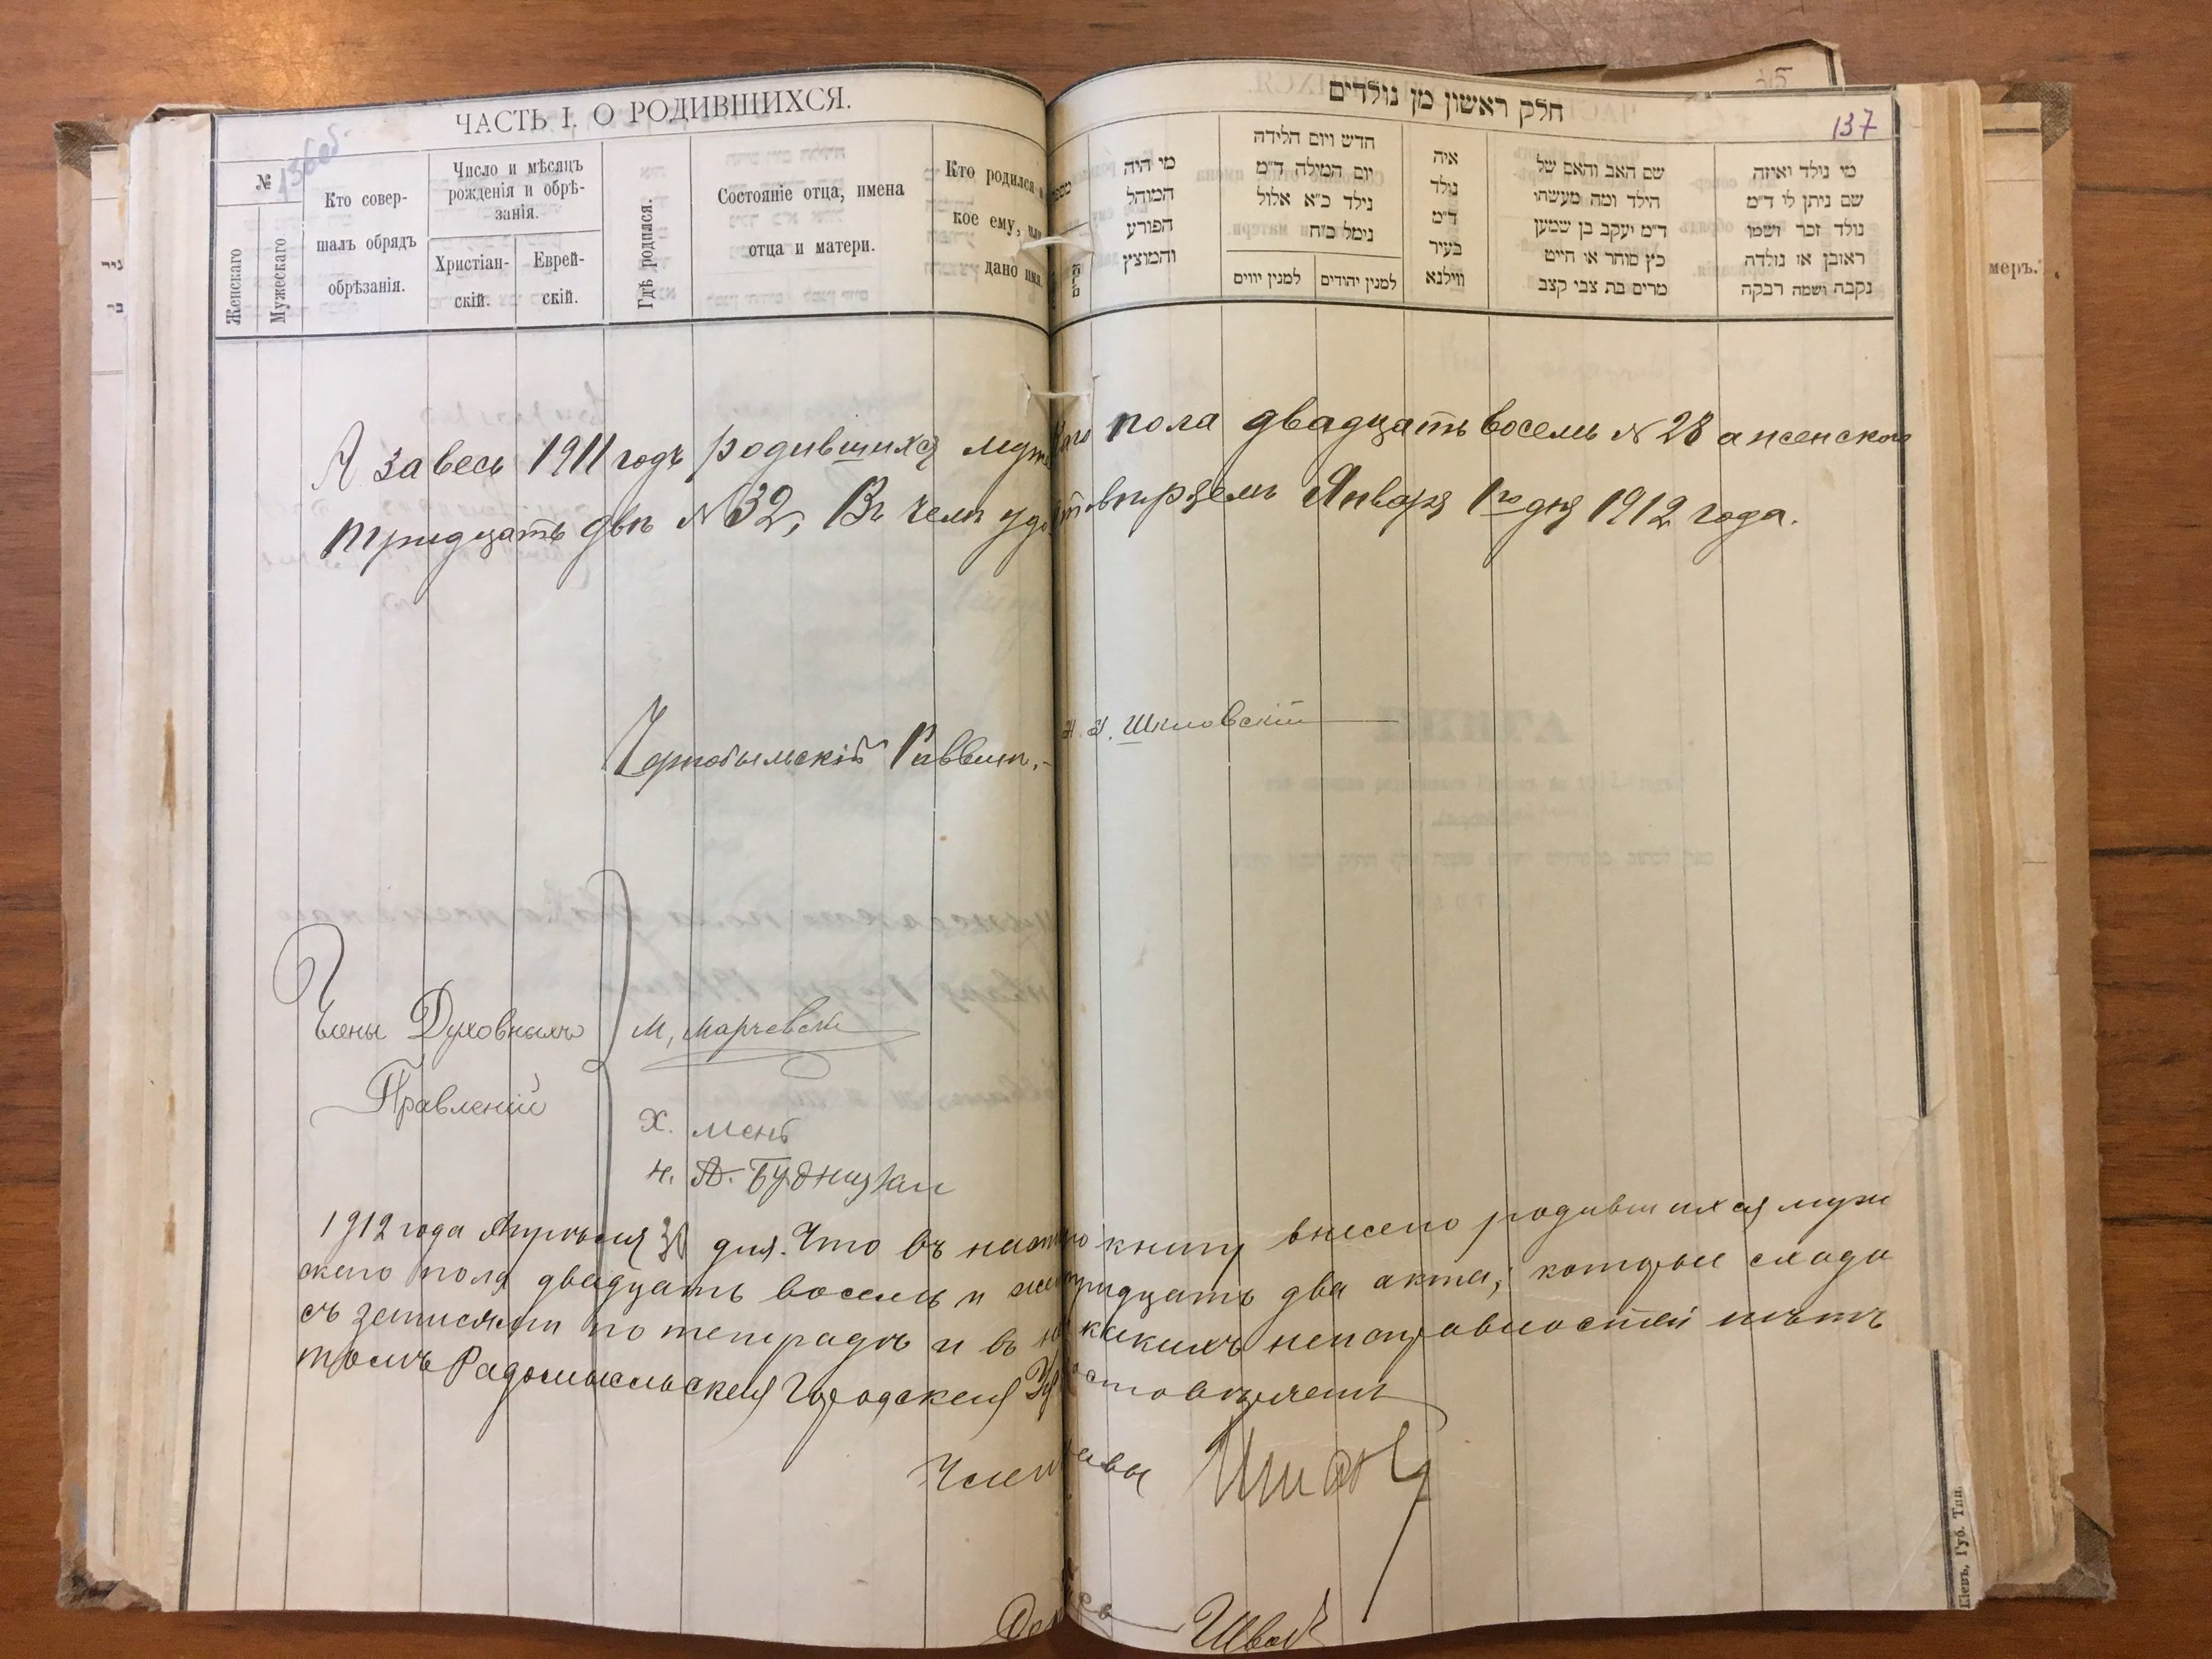 ЧАСТЬ I. О РОДИВШИХСЯ.
136об.
№
Женскаго
Мужескаго
Кто совер-
шалъ обрядъ
обрѣзанія.
Число и мѣсяцъ
рожденія и обрѣ-
занія.
Христіан-
скій.
Еврей-
скій.
Гдѣ родился.
Состояніе отца, имена
отца и матери.
Кто родился и
кое ему, или
дано имя.
חלק ראשון מן נולדים
137
מי היה
המוהל
הפורע
והמוצץ
חדש ויום הלידה
יום המילה ד״מ
נילד כ״א אלול
נימל כ״ח
למנין יווים
למנין יהודים
איה
נולד
ד״מ
בעיר
ווילנא
שם האב והאם של
הילד ומה מעשהו
ד״מ יעקב בן שמען
כץ סוחר או חייט
מרים בת צבי קצב
מי נולד ואיזה
שם ניתן לו ד״מ
נולד זכר ושמו
ראובן או נולדה
נקבה ושמה רבקה
А за весь 1911 годъ родившихся муж каго пола двадцать восемь № 28 а женскаго
тридцать двѣ № 32, Въ чемъ удо товѣряемъ Января 1го дня 1912 года.
Чернобыльскій Раввинъ, Шкловскій
Члены Духовныхъ
Правленій
М, Марчевски
Х. Мень
Н. А. Будницкаи
1912 года Апрѣля 30 дня. Что въ наст ю книгу внесено родившихся муж
скаго пола двадцать восемь и жен тридцать два акта, которые слода
съ записями по тетрадѣ и въ ни какихъ неисправностей нѣтъ
томъ Радомысльская Городская Уп стовѣряетъ
Член авы
меръ.
Кіевъ, Губ. Тип.